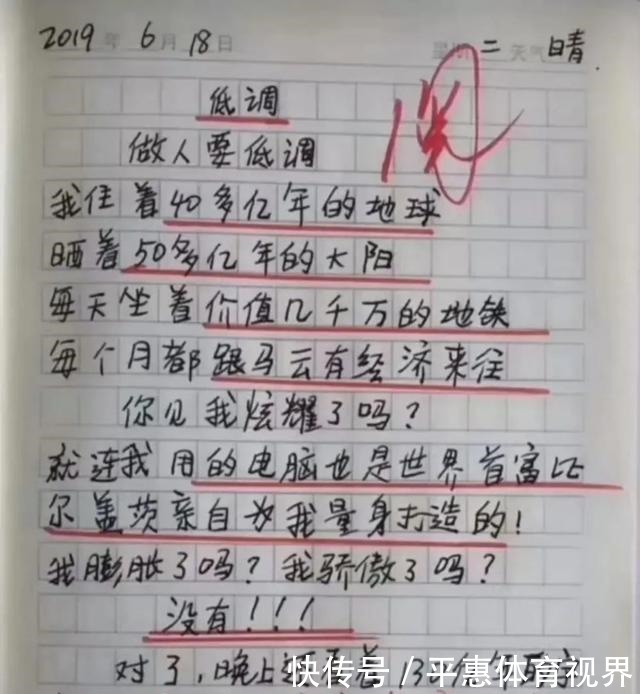 2019年 6月 18日 星期二 天气 晴
低调
阅
做人要低调
我住着40多亿年的地球
晒着50多亿年的大阳
每天坐着价值几千万的地铁
每个月都跟马云有经济来往
你见我炫耀了吗?
就连我用的电脑也是世界首富比
尔盖茨亲自为我量身打造的!
我膨胀了吗?我骄傲了吗?
没有!!!
对了,晚上还看着13
快传号/平惠体育视界